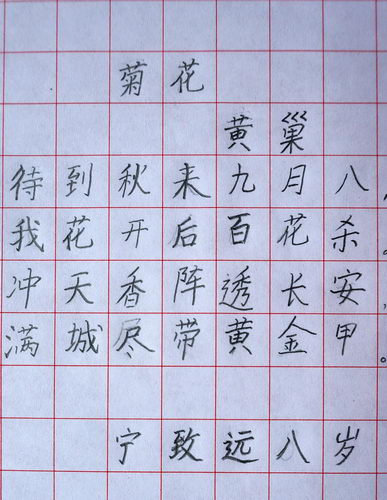 菊花
黄巢
待到秋来九月八，
我花开后百花杀。
冲天香阵透长安，
满城尽带黄金甲。
宁致远八岁